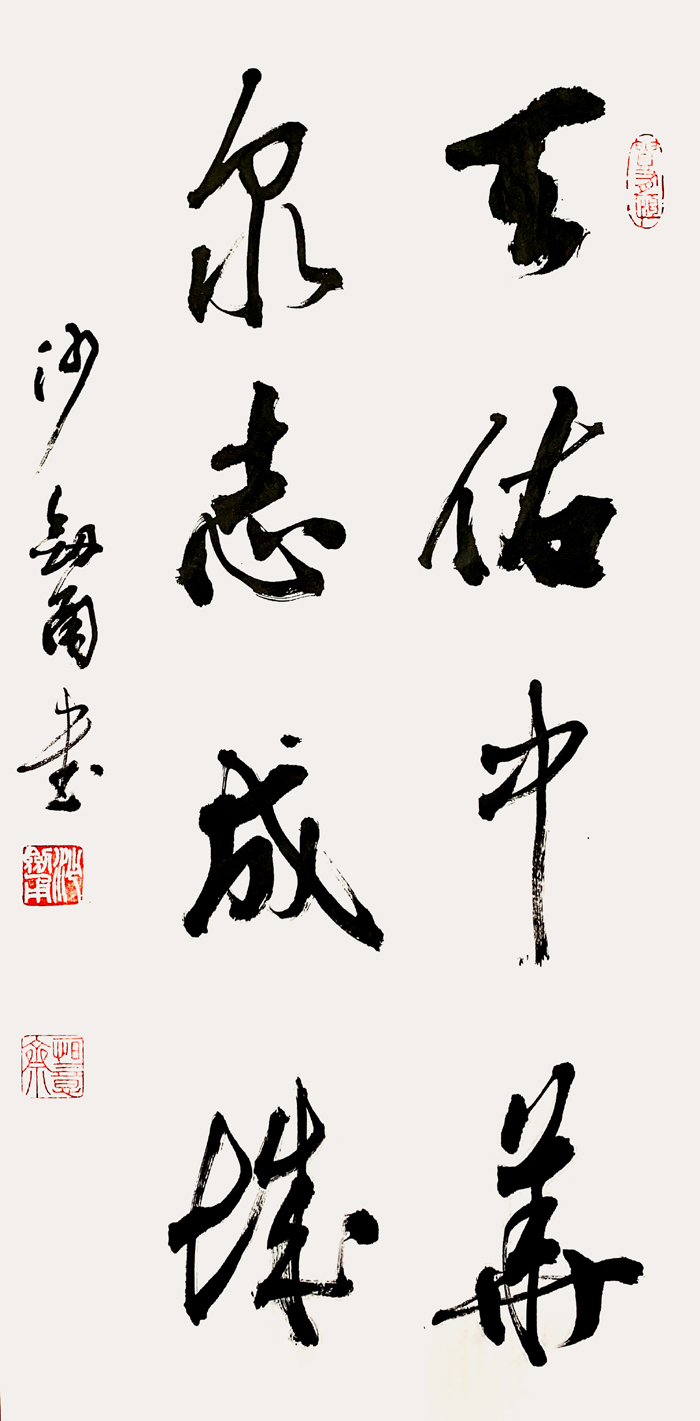 天佑中华
众志成城
沙剑甫书